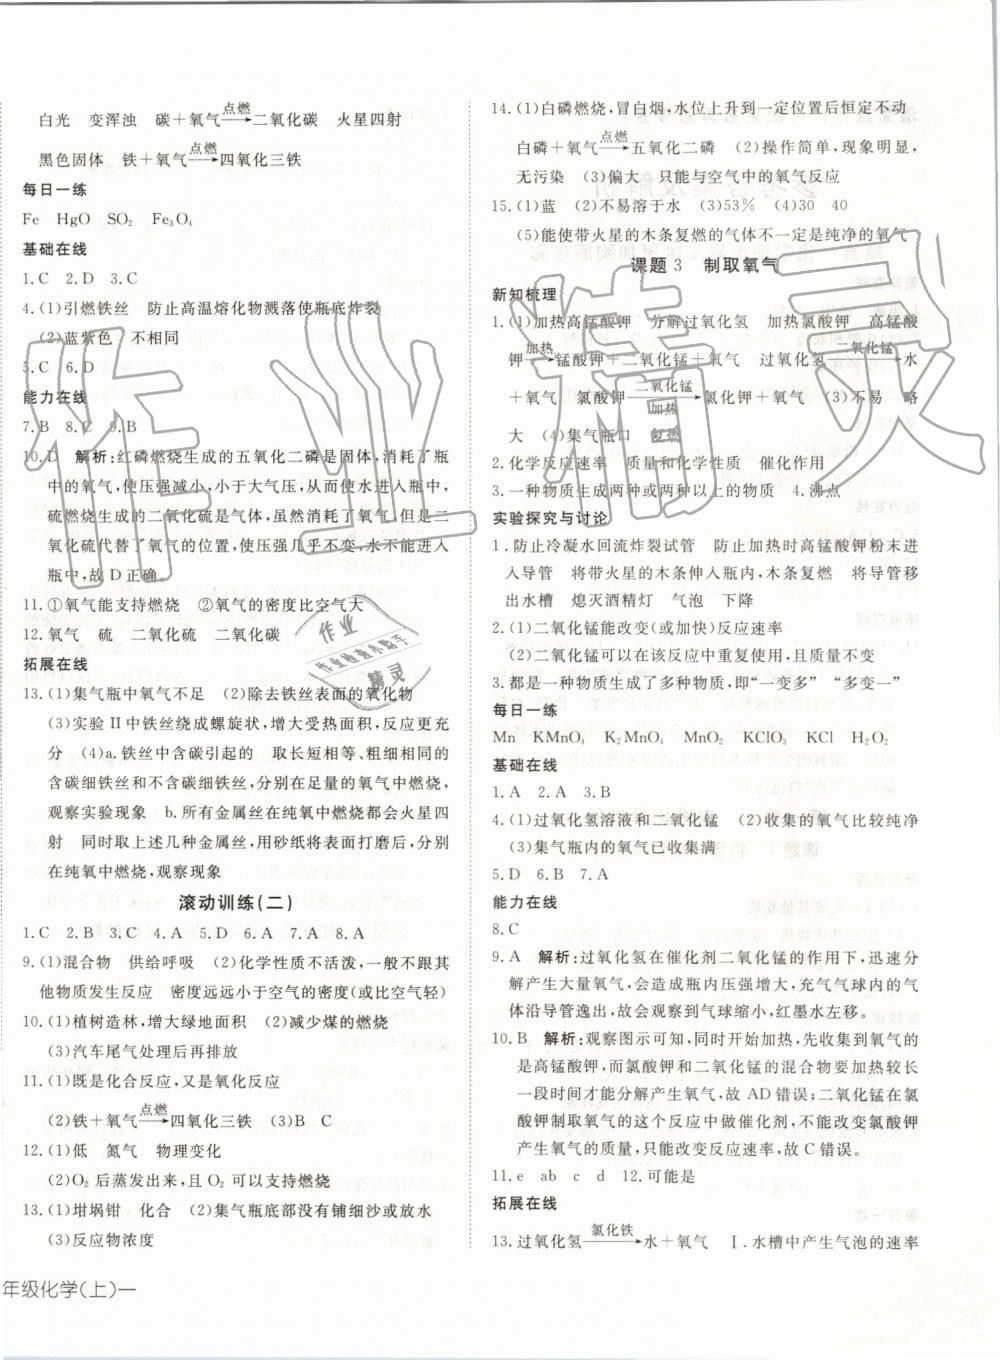 白光　变浑浊　碳＋氧气 点燃→ 二氧化碳　火星四射
黑色固体　铁＋氧气 点燃→ 四氧化三铁
每日一练
Fe　HgO　SO₂　Fe₃O₄
基础在线
1.C　2.D　3.C
4.(1)引燃铁丝　防止高温熔化物溅落使瓶底炸裂
(2)蓝紫色　不相同
5.C　6.D
能力在线
7.B　8.C　9.B
10.D　解析:红磷燃烧生成的五氧化二磷是固体,消耗了瓶
中的氧气,使压强减小,小于大气压,从而使水进入瓶中,
硫燃烧生成的二氧化硫是气体,虽然消耗了氧气,但是二
氧化硫代替了氧气的位置,使压强几乎不变,水不能进入
瓶中,故 D 正确。
11.①氧气能支持燃烧　②氧气的密度比空气大
12.氧气　硫　二氧化硫　二氧化碳
拓展在线
13.(1)集气瓶中氧气不足　(2)除去铁丝表面的氧化物
(3)实验 II 中铁丝绕成螺旋状,增大受热面积,反应更充
分　(4)a.铁丝中含碳引起的　取长短相等、粗细相同的
含碳细铁丝和不含碳细铁丝,分别在足量的氧气中燃烧,
观察实验现象　b.所有金属丝在纯氧中燃烧都会火星四
射　同时取上述几种金属丝,用砂纸将表面打磨后,分
别在纯氧中燃烧,观察现象
滚动训练(二)
1.C　2.B　3.C　4.A　5.D　6.A　7.A　8.A
9.(1)混合物　供给呼吸　(2)化学性质不活泼,一般不跟其
他物质发生反应　密度远远小于空气的密度(或比空气轻)
10.(1)植树造林,增大绿地面积　(2)减少煤的燃烧
(3)汽车尾气处理后再排放
11.(1)既是化合反应,又是氧化反应
(2)铁＋氧气 点燃→ 四氧化三铁　(3)B　C
12.(1)低　氮气　物理变化
(2)O₂ 后蒸发出来,且 O₂ 可以支持燃烧
13.(1)坩埚钳　化合　(2)集气瓶底部没有铺细沙或放水
(3)反应物浓度
年级化学(上)—
14.(1)白磷燃烧,冒白烟,水位上升到一定位置后恒定不动
白磷＋氧气 点燃→ 五氧化二磷　(2)操作简单,现象明显,
无污染　(3)偏大　只能与空气中的氧气反应
15.(1)蓝　(2)不易溶于水　(3)53%　(4)30　40
(5)能使带火星的木条复燃的气体不一定是纯净的氧气
课题 3　制取氧气
新知梳理
1.(1)加热高锰酸钾　分解过氧化氢　加热氯酸钾　高锰酸
钾 加热→ 锰酸钾＋二氧化锰＋氧气　过氧化氢 二氧化锰→ 水
＋氧气　氯酸钾 二氧化锰 加热→ 氯化钾＋氧气　(3)不易　略
大　(4)集气瓶口　复燃
2.化学反应速率　质量和化学性质　催化作用
3.一种物质生成两种或两种以上的物质　4.沸点
实验探究与讨论
1.防止冷凝水回流炸裂试管　防止加热时高锰酸钾粉末进
入导管　将带火星的木条伸入瓶内,木条复燃　将导管移
出水槽　熄灭酒精灯　气泡　下降
2.(1)二氧化锰能改变(或加快)反应速率
(2)二氧化锰可以在该反应中重复使用,且质量不变
3.都是一种物质生成了多种物质,即“一变多”　“多变一”
每日一练
Mn　KMnO₄　K₂MnO₄　MnO₂　KClO₃　KCl　H₂O₂
基础在线
1.A　2.A　3.B
4.(1)过氧化氢溶液和二氧化锰　(2)收集的氧气比较纯净
(3)集气瓶内的氧气已收集满
5.D　6.B　7.A
能力在线
8.C
9.A　解析:过氧化氢在催化剂二氧化锰的作用下,迅速分
解产生大量氧气,造成瓶内压强增大,充气气球内的气
体沿导管逸出,故会观察到气球缩小,红墨水左移。
10.B　解析:观察图示可知,同时开始加热,先收集到氧气的
是高锰酸钾,而氯酸钾和二氧化锰的混合物要加热较长
一段时间才能分解产生氧气,故 AD 错误;二氧化锰在氯
酸钾制取氧气的这个反应中做催化剂,不能改变氯酸钾
产生氧气的质量,只能改变反应速率,故 C 错误。
11.e　ab　c　d　12.可能是
拓展在线
13.过氧化氢 氯化铁→ 水＋氧气　Ⅰ.水槽中产生气泡的速率
作业精灵
作业
作业检查小助手
精灵